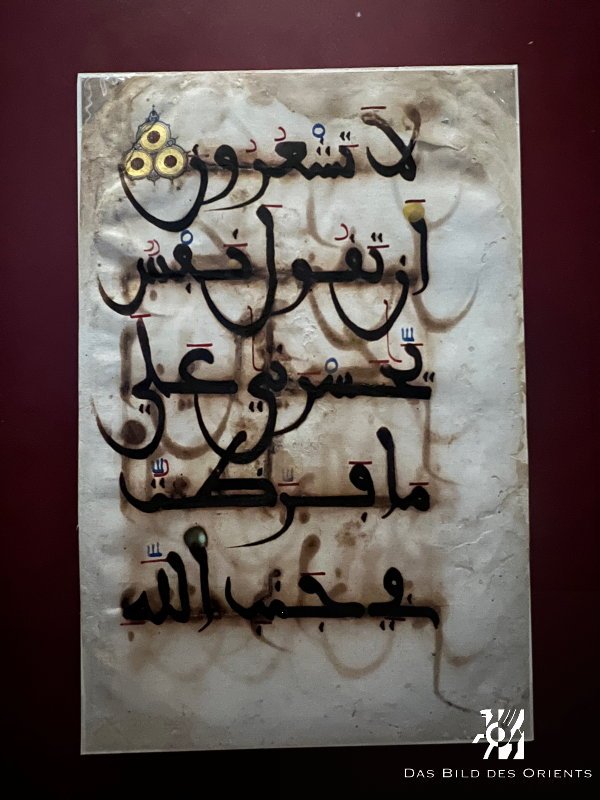 لَا تَشْعُرُونَ
أَن تَقُولَ نَفْسٌ
يَٰحَسْرَتَىٰ عَلَىٰ
مَا فَرَّطتُّ
فِى جَنۢبِ ٱللَّهِ
DAS BILD DES ORIENTS